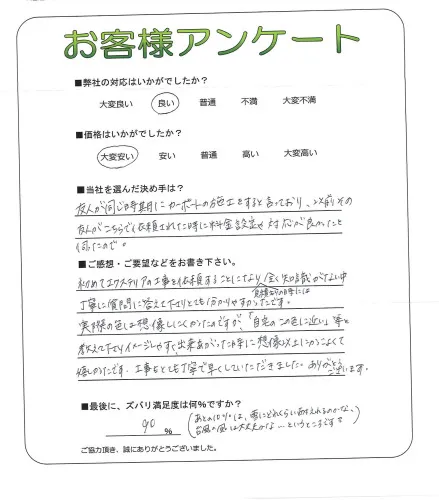 お客様アンケート
■弊社の対応はいかがでしたか?
大変良い 良い 普通 不満 大変不満
■価格はいかがでしたか?
大変安い 安い 普通 高い 大変高い
■当社を選んだ決め手は?
友人が同じ時期にカーポートの施工をすると言っており、以前その
友人がこちらで依頼された時に料金設定や対応が良かったと
伺ったので。
■ご感想・ご要望などをお書き下さい。
初めてエクステリアの工事を依頼することになり全く知識がない中
見積りの時には
丁寧に質問に答えて下さりとても分かりやすかったです。
実際の色は想像しにくかったのですが、「自宅のこの色に近い」等と
教えて下さりイメージしやすく、出来あがった時に想像以上にかっこよくて
嬉しかったです。工事もとても丁寧で早くしていただきました。ありがとう
ございます。
■最後に、ズバリ満足度は何%ですか?
90 %
(あとの10%は、雪にどれくらい耐えれるのかな、
台風の風は大丈夫かな…というところです)
ご協力頂き、誠にありがとうございました。